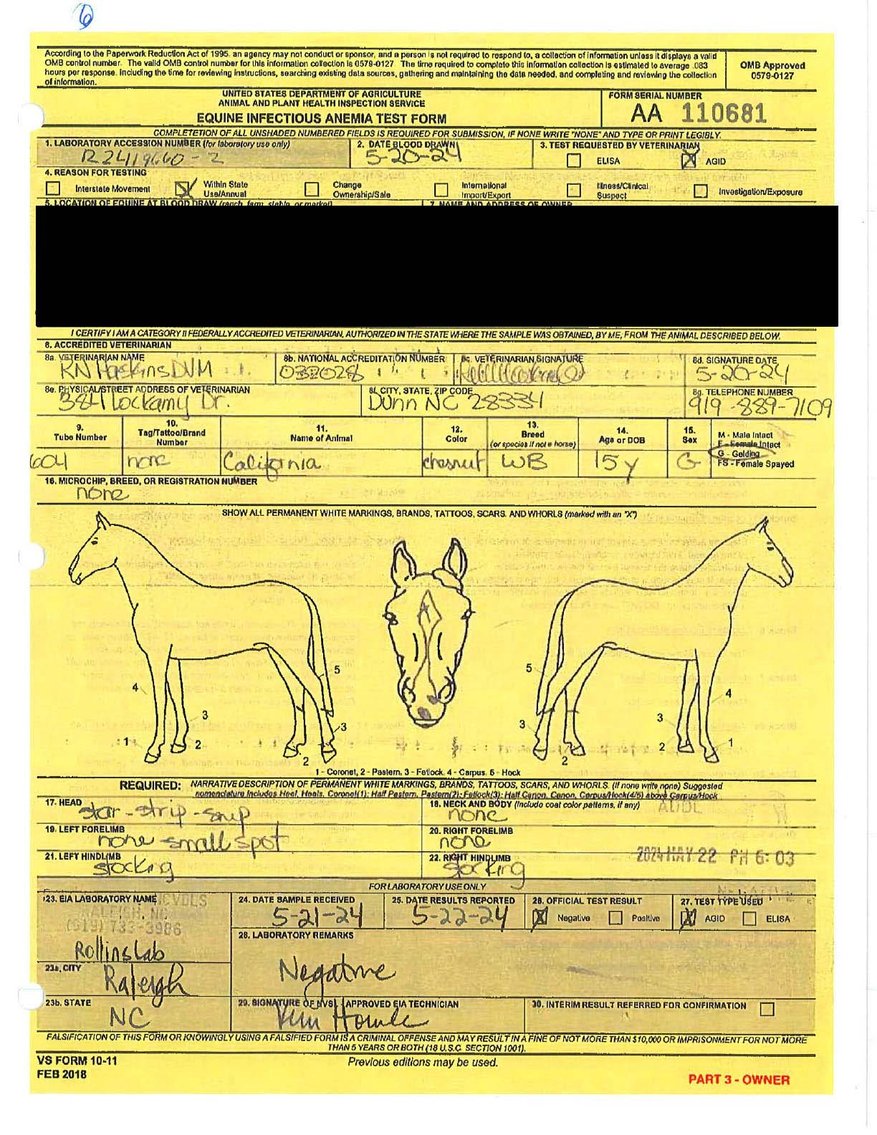 6
According to the Paperwork Reduction Act of 1995, an agency may not conduct or sponsor, and a person is not required to respond to, a collection of information unless it displays a valid
OMB control number. The valid OMB control number for this information collection is 0579-0127. The time required to complete this information collection is estimated to average .083
hours per response, including the time for reviewing instructions, searching existing data sources, gathering and maintaining the data needed, and completing and reviewing the collection
of information.
OMB Approved
0579-0127
UNITED STATES DEPARTMENT OF AGRICULTURE
ANIMAL AND PLANT HEALTH INSPECTION SERVICE
EQUINE INFECTIOUS ANEMIA TEST FORM
FORM SERIAL NUMBER
AA 110681
COMPLETETION OF ALL UNSHADED NUMBERED FIELDS IS REQUIRED FOR SUBMISSION, IF NONE WRITE "NONE" AND TYPE OR PRINT LEGIBLY.
1. LABORATORY ACCESSION NUMBER (for laboratory use only)
R2419660-2
2. DATE BLOOD DRAWN
5-20-24
3. TEST REQUESTED BY VETERINARIAN
ELISA
AGID
4. REASON FOR TESTING
Interstate Movement
Within State
Use/Annual
Change
Ownership/Sale
International
Import/Export
Illness/Clinical
Suspect
Investigation/Exposure
5. LOCATION OF EQUINE AT BLOOD DRAW (ranch, farm, stable, or market)
7. NAME AND ADDRESS OF OWNER
I CERTIFY I AM A CATEGORY II FEDERALLY ACCREDITED VETERINARIAN, AUTHORIZED IN THE STATE WHERE THE SAMPLE WAS OBTAINED, BY ME, FROM THE ANIMAL DESCRIBED BELOW.
8. ACCREDITED VETERINARIAN
8a. VETERINARIAN NAME
KN Haskins DVM
8b. NATIONAL ACCREDITATION NUMBER
033028
8c. VETERINARIAN SIGNATURE
8d. SIGNATURE DATE
5-20-24
8e. PHYSICAL/STREET ADDRESS OF VETERINARIAN
384 Lockamy Dr.
8f. CITY, STATE, ZIP CODE
Dunn NC 28334
8g. TELEPHONE NUMBER
919-889-7109
9.
Tube Number
10.
Tag/Tattoo/Brand
Number
11.
Name of Animal
12.
Color
13.
Breed
(or species if not a horse)
14.
Age or DOB
15.
Sex
M - Male Intact
F - Female Intact
G - Gelding
FS - Female Spayed
604
none
California
chesnut
WB
15y
G
16. MICROCHIP, BREED, OR REGISTRATION NUMBER
none
SHOW ALL PERMANENT WHITE MARKINGS, BRANDS, TATTOOS, SCARS, AND WHORLS (marked with an "X")
5
4
3
1
2
3
2
5
4
3
3
2
1
2
1 - Coronet, 2 - Pastern, 3 - Fetlock, 4 - Carpus, 5 - Hock
REQUIRED: NARRATIVE DESCRIPTION OF PERMANENT WHITE MARKINGS, BRANDS, TATTOOS, SCARS, AND WHORLS. (If none write none) Suggested
nomenclature includes Heel, Heels, Coronet(1); Half Pastern, Pastern(2); Fetlock(3); Half Canon, Canon, Carpus/Hock(4/5) above Carpus/Hock
17. HEAD
star-strip-snip
18. NECK AND BODY (include coat color patterns, if any)
none
19. LEFT FORELIMB
none-small spot
20. RIGHT FORELIMB
none
21. LEFT HINDLIMB
stocking
22. RIGHT HINDLIMB
stocking
2024 MAY 22 PM 6:03
FOR LABORATORY USE ONLY
23. EIA LABORATORY NAME
NCVDLS
RALEIGH, NC
(919) 733-3986
Rollins Lab
24. DATE SAMPLE RECEIVED
5-21-24
25. DATE RESULTS REPORTED
5-22-24
26. OFFICIAL TEST RESULT
Negative
Positive
27. TEST TYPE USED
AGID
ELISA
23a. CITY
Raleigh
28. LABORATORY REMARKS
Negative
23b. STATE
NC
29. SIGNATURE OF NVSL APPROVED EIA TECHNICIAN
30. INTERIM RESULT REFERRED FOR CONFIRMATION
FALSIFICATION OF THIS FORM OR KNOWINGLY USING A FALSIFIED FORM IS A CRIMINAL OFFENSE AND MAY RESULT IN A FINE OF NOT MORE THAN $10,000 OR IMPRISONMENT FOR NOT MORE
THAN 5 YEARS OR BOTH (18 U.S.C. SECTION 1001).
VS FORM 10-11
FEB 2018
Previous editions may be used.
PART 3 - OWNER